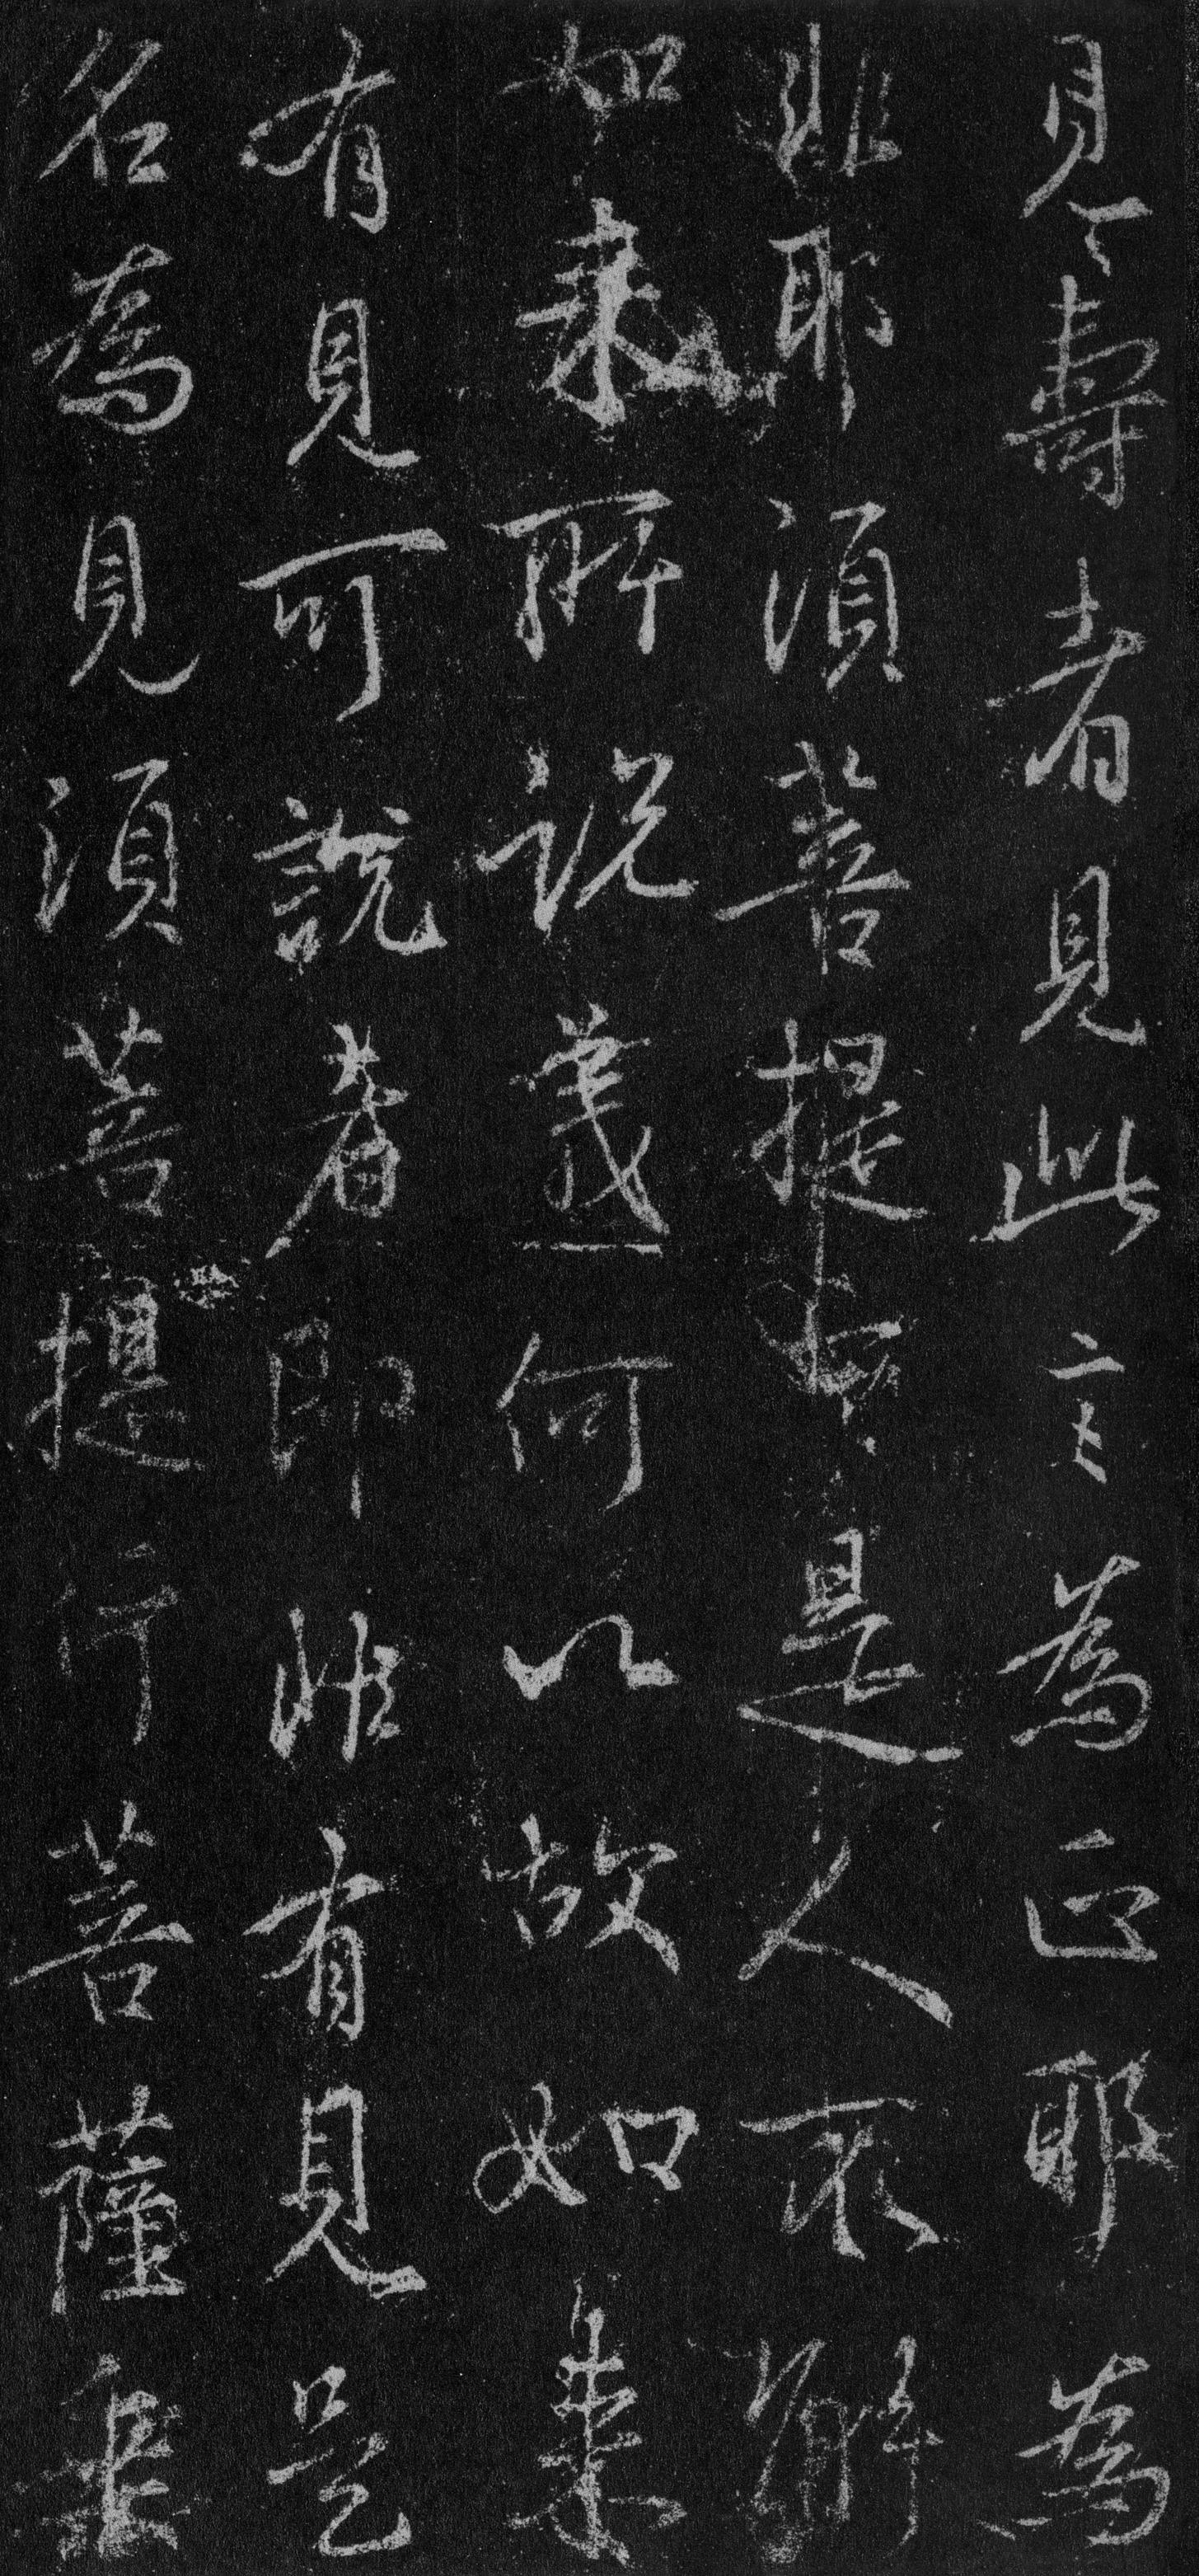 見壽者見此言為正耶為
非耶須菩提言是人不解
如来所说義何以故如来
有見可說者即非有見是
名為見須菩提行菩薩乘